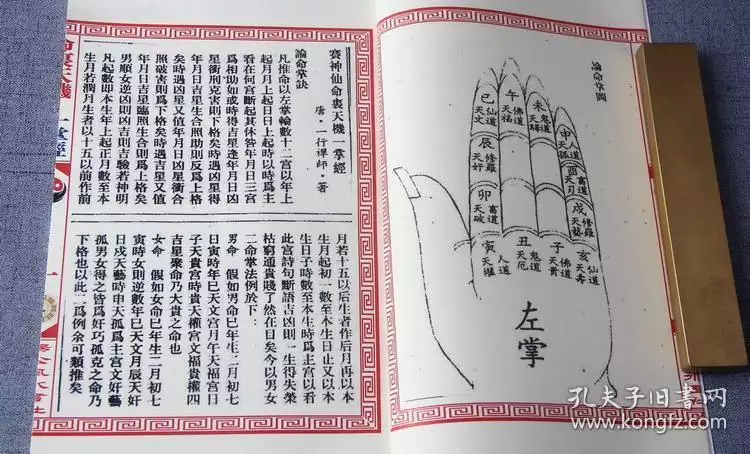 賽神仙命裏天機一掌經
唐·一行禪師 著
論命掌訣
凡推命以左掌輪數十二宮以年上
起月月上起日日上起時以時爲主
看在何宮斷起其休咎年月日三宮
爲相助如或時得吉星逢年月日凶
星衝刑克害則下格矣時遇凶星得
年月日吉星生合照助則反爲上格
矣時遇凶星又值年月日凶星衝合
照破害則爲下格矣時遇吉星又值
年月日吉星臨照生合則爲上格矣
男順女逆凶則凶吉則吉驗若神明
凡起數即本生年上起正月數至本
生月若潤月生者以十五以前作前
月若十五以后生者作后月再以本
生月起初一數至本生日止又以本
生日子時數至本生時爲主宮以看
此宮詩句斷語吉凶則一生得失榮
枯窮通貴賤了然在目矣今以男女
二命掌法例於下：
男命 假如男命巳年生二月初七
日寅時年巳天文宮月午天福宮日
子天貴宮時貴天權宮文福貴權四
吉星聚命乃大貴之命也
女命 假如女命巳年生二月初七
寅時女則逆數年巳天文月辰天奸
日戌天藝時申天孤爲主宮文奸藝
孤男女得之皆爲奸巧孤克之命乃
下格也以此二爲例余可類推矣
一掌經
論命掌圖
巳 仙道 天文
午 佛道 天福
未 鬼道 天驛
申 人道 天孤
辰 修羅 天奸
酉 畜道 天刃
卯 畜道 天破
戌 修羅 天藝
寅 人道 天權
丑 鬼道 天厄
子 佛道 天貴
亥 仙道 天壽
左掌
孔夫子旧书网
www.kongfz.com